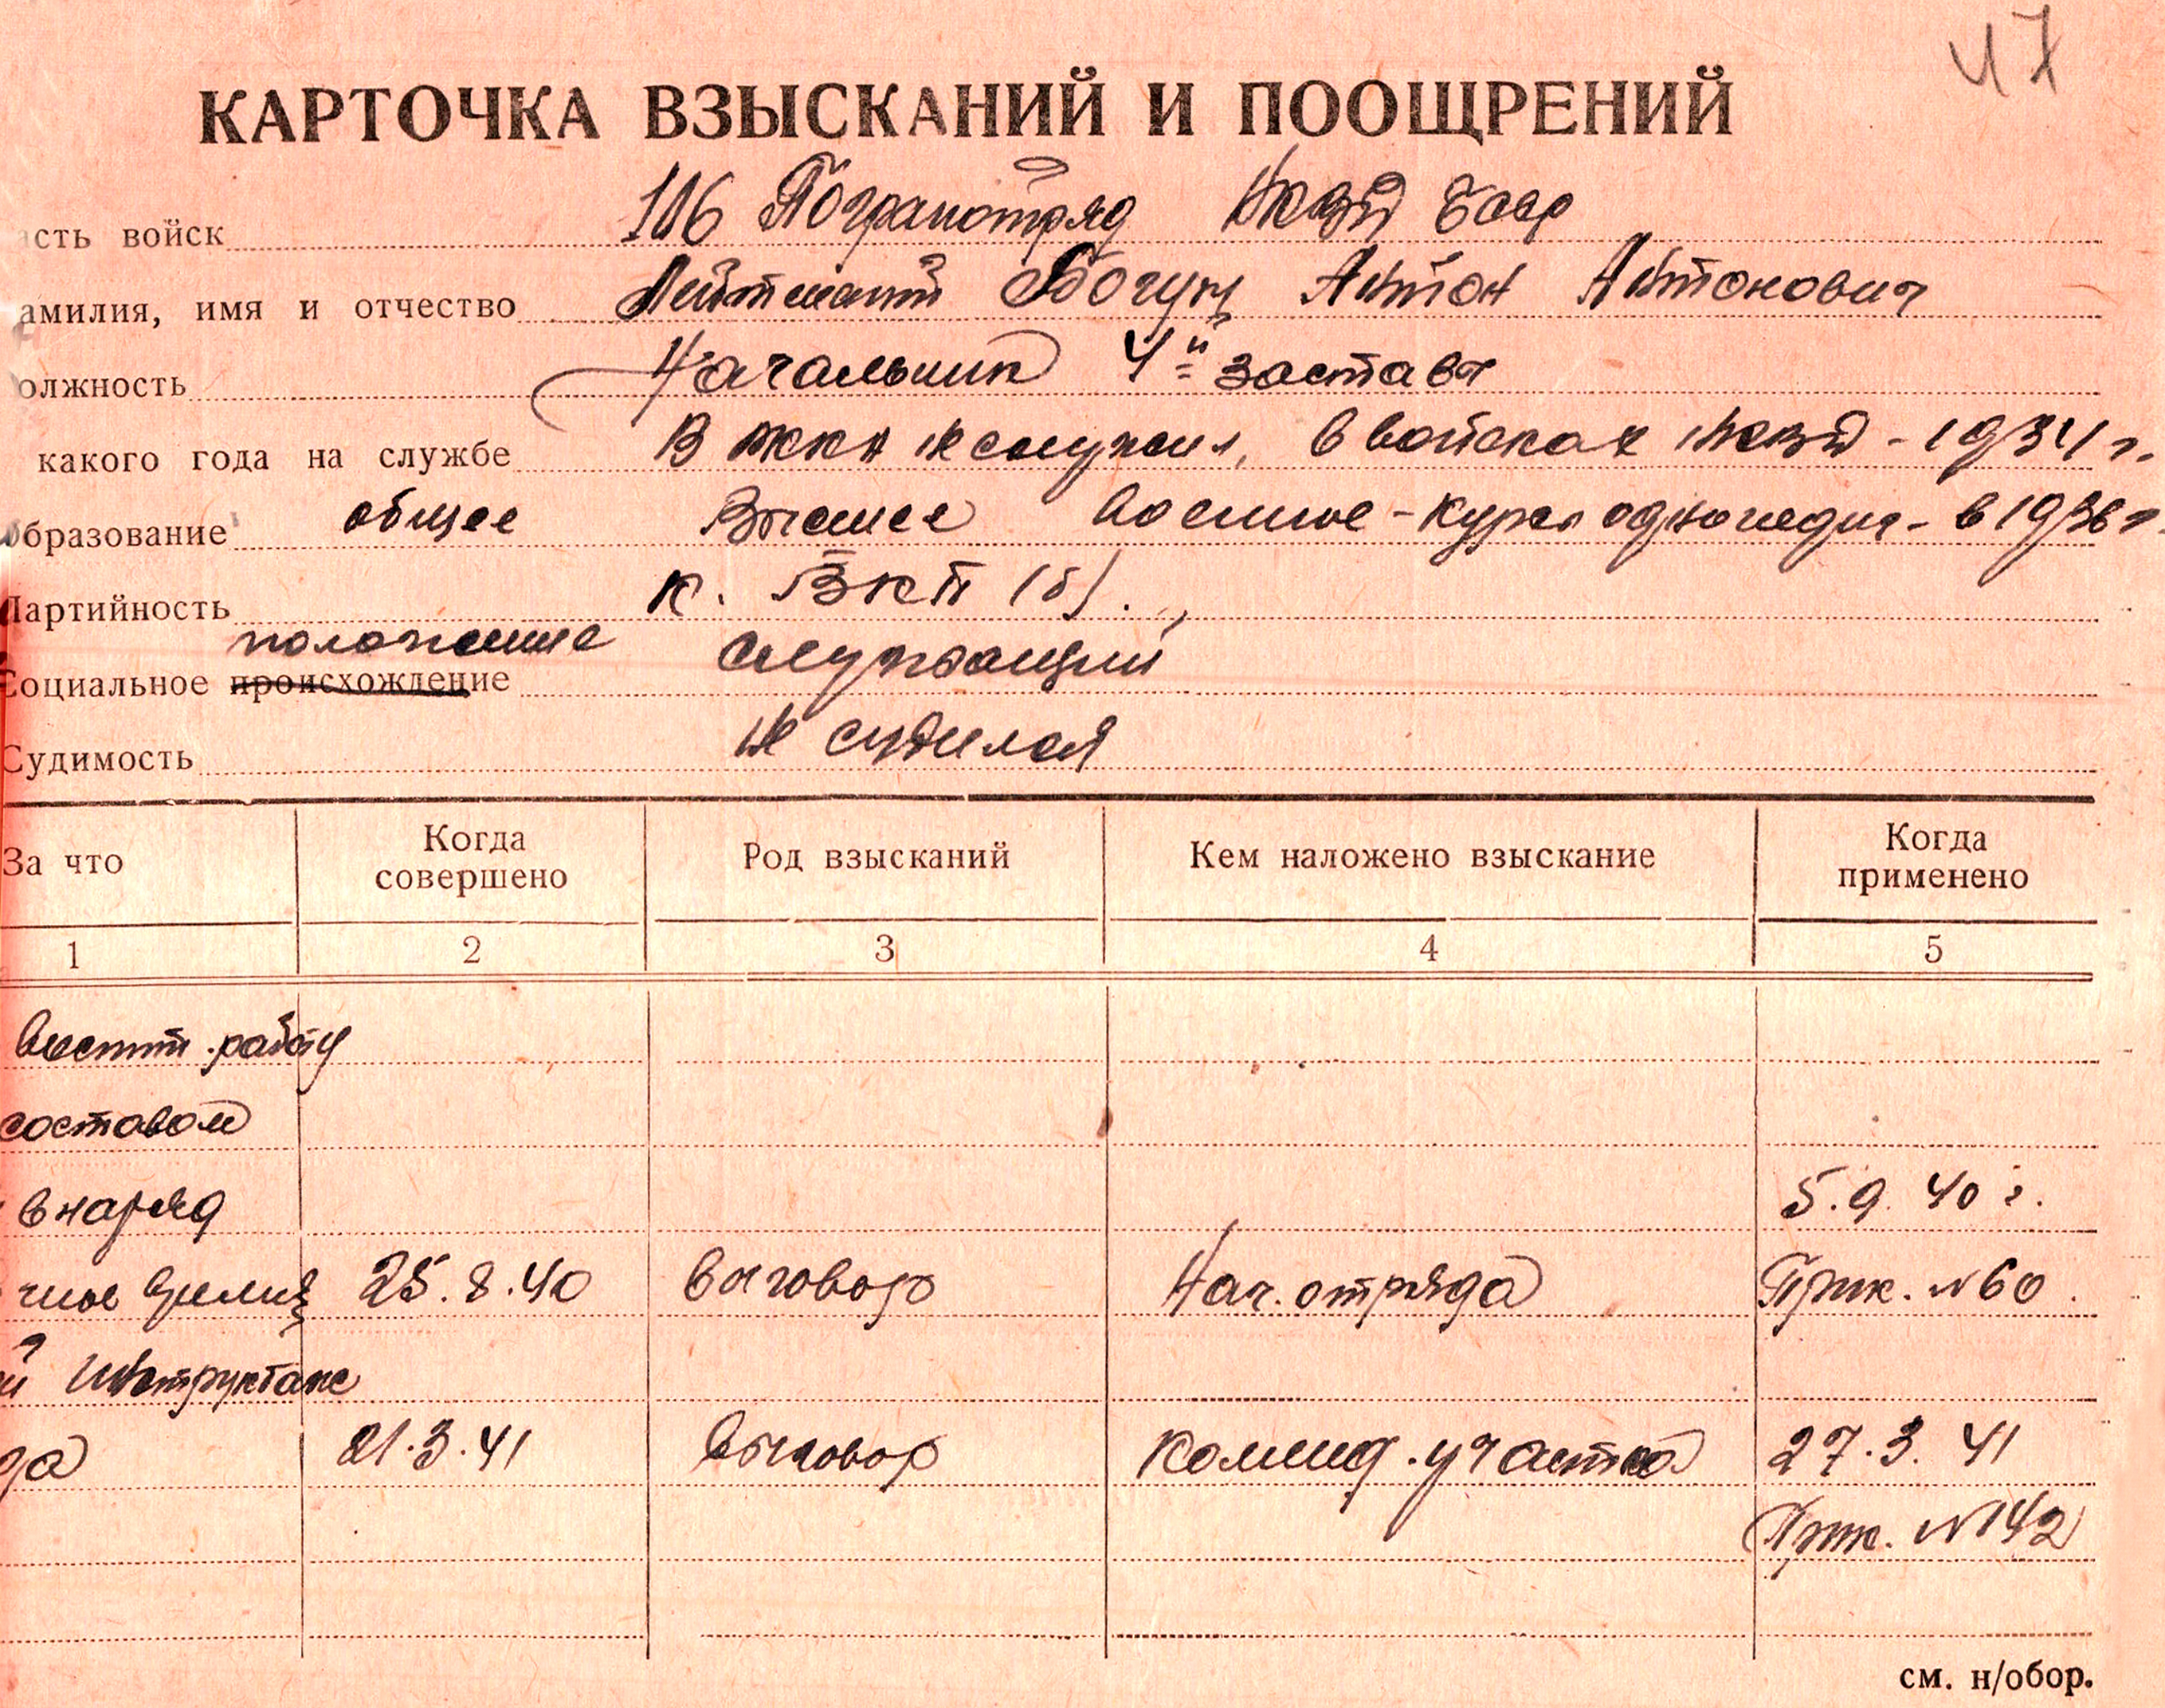 47
КАРТОЧКА ВЗЫСКАНИЙ И ПООЩРЕНИЙ
асть войск 106 Погранотряд НКВД БССР
амилия, имя и отчество Лейтенант Богун Антон Антонович
олжность Начальник 4й заставы
какого года на службе В РККА не служил, в войсках НКВД - 1934 г.
Образование общее Высшее Военное - Курсы одногодич - в 1936 г.
Партийность К. ВКП (б).
положение
Социальное происхождение служащий
Судимость не судился
За что Когда совершено Род взысканий Кем наложено взыскание Когда применено
1 2 3 4 5
воспит. работу
составом
в наряд 5.9.40 г.
ное время 25.8.40 выговор Нач. отряда Прик. №60.
й инструктаж
да 21.3.41 выговор Коменд. участка 27.3.41
Прик. №142
см. н/обор.